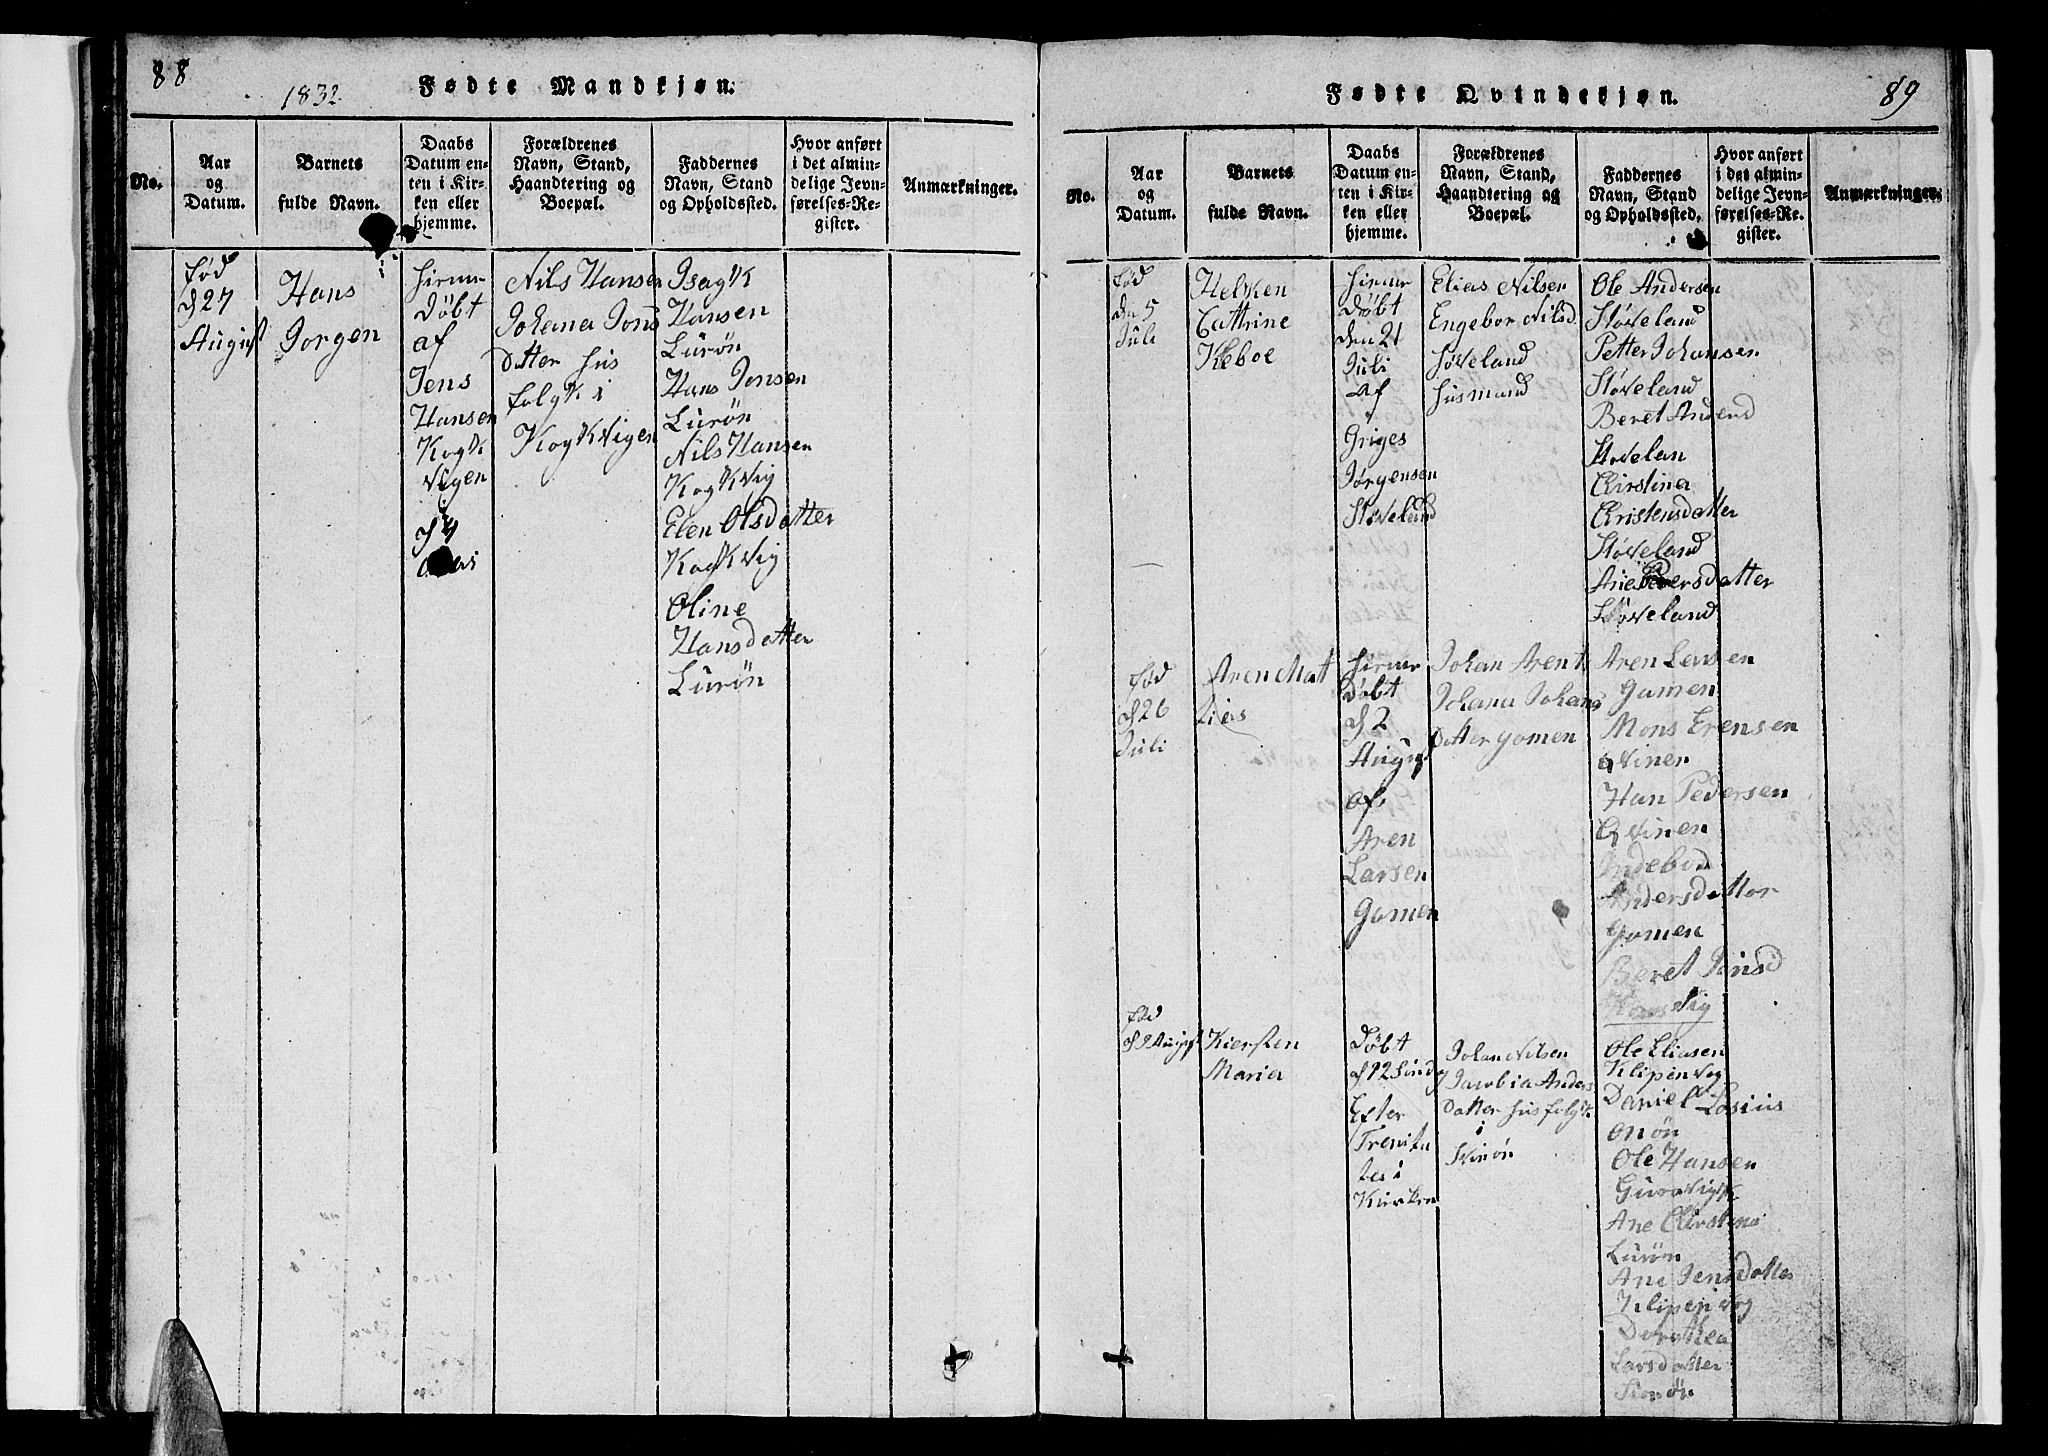 88
1832
Fødte Mandkjøn.
No.
Aar
og
Datum.
Barnets
fulde Navn.
Daabs
Datum en-
ten i Kir-
ken eller
hjemme.
Forældrenes
Navn, Stand,
Haandtering og
Boepæl.
Faddernes
Navn, Stand
og Opholdssted.
Hvor anført
i det almin-
delige Jevn-
førelses-Re-
gister.
Anmærkninger.
fød
d 27
August
Hans
Jorgen
Døbt
af
Jens
Hansen
Kogk
vigen
d 4
Nils Hansen
Johana Jons
Datter hus
folgk i
Kogkvigen
Isagk
Hansen
Lurøn
Hans Jonsen
Lurøn
Nils Hansen
Kogkvig
Elen Olsdatter
Kogkvig
Oline
Hansdatter
Lurøn
Fødte Qvindekjøn.
89
No.
Aar
og
Datum.
Barnets
fulde Navn.
Daabs
Datum en-
ten i Kir-
ken eller
hjemme.
Forældrenes
Navn, Stand,
Haandtering og
Boepæl.
Faddernes
Navn, Stand
og Opholdssted.
Hvor anført
i det almin-
delige Jevn-
førelses-Re-
gister.
Anmærkninger.
fød
den 5
Juli
Helken
Cathrine
Keboe
Døbt
den 21
Juli
af
Griges
Jørgensen
Støveland
Elias Nilsen
Engebor Nilsd
Støveland
husmand
Ole Andersen
Støveland
Petter Johansen
Støveland
Beret Andersd
Støvelan
Chirstina
Christensdatter
Støveland
Ane Peersdatter
Støveland
fød
d 26
Juli
Aren Mat
tias
Døbt
d 2
August
af
Aren
Larsen
Gamen
Johan Arent
Johana Johans
Datter gamen
Aren Larsen
Gamen
Mons Erensen
Qvinen
Han Pedersen
Qvinen
Indebor
Andersdatter
Gamen
Beret Jonsd
fød
d 2 August
Kiersten
Maria
Døbt
d 12 Sindg
Efter
Trenita
tes i
Kirken
Johan Nilsen
Jacobia Anders
Datter hus folgk
i
Ole Eliasen
Klipenvog
Daniel Losius
Onøn
Ole Hansen
Guravigk
Ane Chirstina
Lurøn
Ane Jensdatter
Klipenvog
Dorothea
Larsdatter